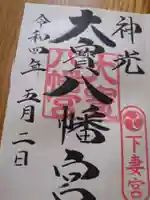 神光
大寶八幡宮
令和四年 五月二日
下妻宮